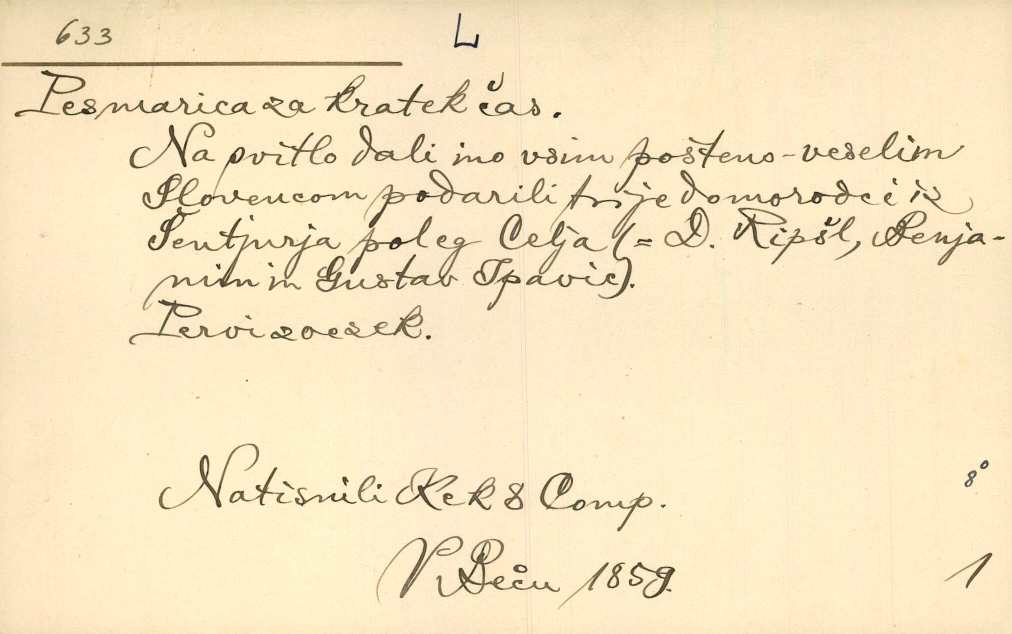 633
L
Pesmarica za kratek čas.
Na svitlo dali ino vsim pošteno-veselim
Slovencom podarili trije domorodci iz
Šentjurja poleg Celja (= D. Ripšl, Benja-
min in Gustav Ipavic).
Pervi zvezek.
Natisnili Kek & Comp.
8°
V Beču 1859.
1